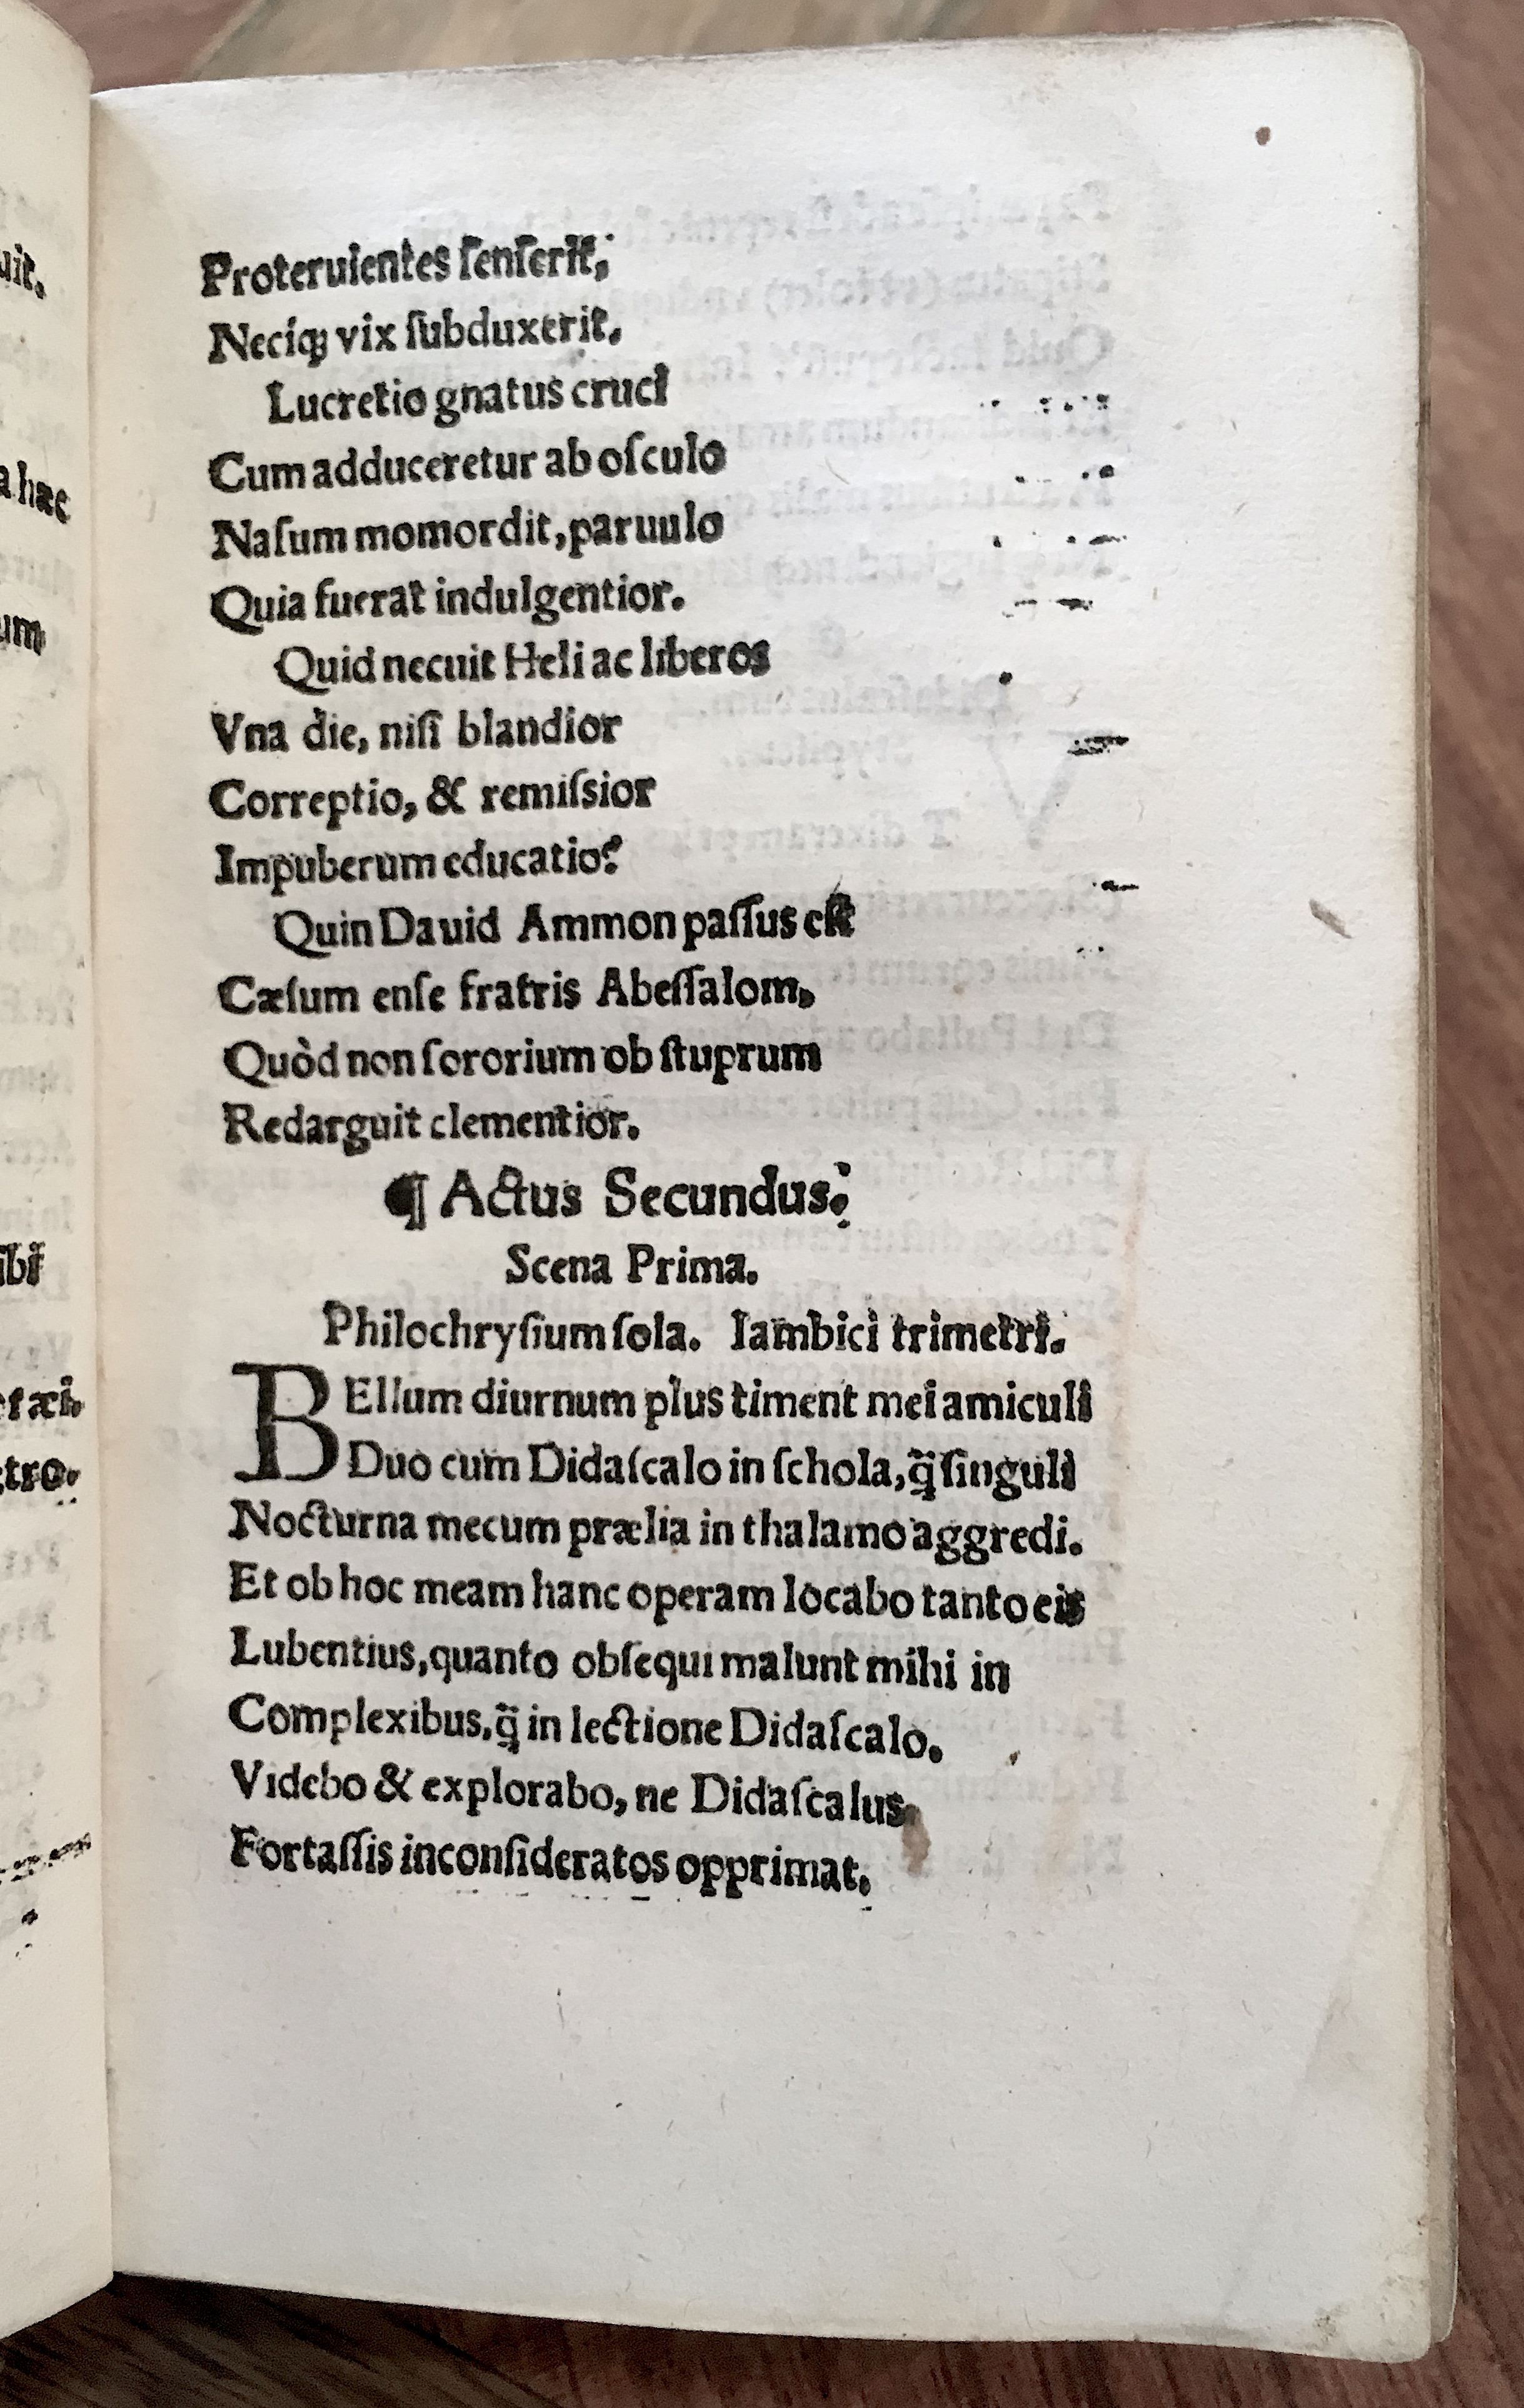 uit.
a hæc
um
ibi
tro.
Proteruientes ſenſerit,
Neciq; vix ſubduxerit.
Lucretio gnatus cruci
Cum adduceretur ab oſculo
Naſum momordit, paruulo
Quia fuerat indulgentior.
Quid necuit Heli ac liberos
Vna die, niſi blandior
Correptio, & remiſsior
Impuberum educatio?
Quin Dauid Ammon paſſus eſt
Cæſum enſe fratris Abeſſalom,
Quòd non ſororium ob ſtuprum
Redarguit clementior.
¶ Actus Secundus.
Scena Prima.
Philochryſium ſola. Iambici trimetri.
BEllum diurnum plus timent mei amiculi
Duo cum Didaſcalo in ſchola, q̃ ſinguli
Nocturna mecum prælia in thalamo aggredi.
Et ob hoc meam hanc operam locabo tanto eis
Lubentius, quanto obſequi malunt mihi in
Complexibus, q̃ in lectione Didaſcalo.
Videbo & explorabo, ne Didaſcalus
Fortaſſis inconſideratos opprimat.